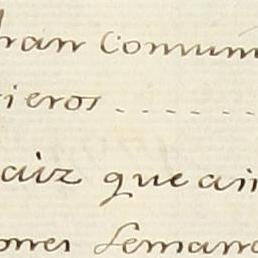 hran Comun
ieros - - - - - -
aiz que ain
ores semana